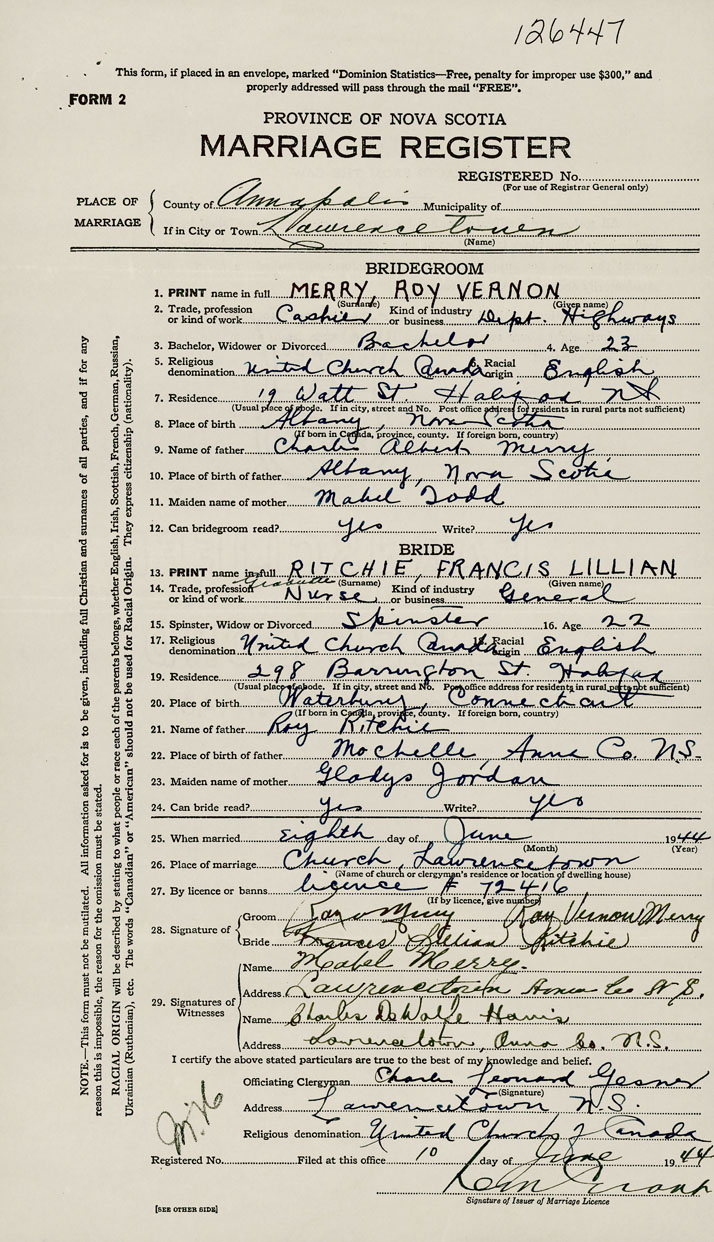 126447
This form, if placed in an envelope, marked "Dominion Statistics—Free, penalty for improper use $300," and
properly addressed will pass through the mail "FREE".
FORM 2
PROVINCE OF NOVA SCOTIA
MARRIAGE REGISTER
REGISTERED No.
(For use of Registrar General only)
PLACE OF MARRIAGE
County of Annapolis Municipality of
If in City or Town Lawrencetown
(Name)
BRIDEGROOM
1. PRINT name in full MERRY, ROY VERNON
(Surname) (Given name)
2. Trade, profession or kind of work Cashier Kind of industry or business Dept. Highways
3. Bachelor, Widower or Divorced Bachelor 4. Age 23
5. Religious denomination United Church Canada 6. Racial origin English
7. Residence 19 Watt St. Halifax NS
(Usual place of abode. If in city, street and No. Post office address for residents in rural parts not sufficient)
8. Place of birth Albany, Nova Scotia
(If born in Canada, province, county. If foreign born, country)
9. Name of father Charles Albert Merry
10. Place of birth of father Albany, Nova Scotia
11. Maiden name of mother Mabel Todd
12. Can bridegroom read? Yes Write? Yes
BRIDE
13. PRINT name in full RITCHIE, FRANCIS LILLIAN
(Surname) (Given name)
14. Trade, profession or kind of work Graduate Nurse Kind of industry or business General
15. Spinster, Widow or Divorced Spinster 16. Age 22
17. Religious denomination United Church Canada 18. Racial origin English
19. Residence 298 Barrington St. Halifax
(Usual place of abode. If in city, street and No. Post office address for residents in rural parts not sufficient)
20. Place of birth Waterbury, Connecticut
(If born in Canada, province, county. If foreign born, country)
21. Name of father Roy Ritchie
22. Place of birth of father Mochelle, Anna Co. N.S.
23. Maiden name of mother Gladys Jordan
24. Can bride read? Yes Write? Yes
25. When married Eighth day of June 1944
(Month) (Year)
26. Place of marriage Church, Lawrencetown
(Name of church or clergyman's residence or location of dwelling house)
27. By licence or banns licence # 72416
(If by licence, give number)
28. Signature of
Groom Roy V Merry Roy Vernon Merry
Bride Frances Lillian Ritchie
29. Signatures of Witnesses
Name Mabel Merry.
Address Lawrencetown Anna Co N.S.
Name Charles DeWolfe Harris
Address Lawrencetown, Anna Co. N.S.
I certify the above stated particulars are true to the best of my knowledge and belief.
Officiating Clergyman Charles Leonard Gesner
(Signature)
Address Lawrencetown N.S.
Religious denomination United Church of Canada
Registered No. Filed at this office 10 day of June 1944
Signature of Issuer of Marriage Licence
[SEE OTHER SIDE]
NOTE.—This form must not be mutilated. All information asked for is to be given, including full Christian and surnames of all parties, and if for any
reason this is impossible, the reason for the omission must be stated.
RACIAL ORIGIN will be described by stating to what people or race each of the parents belongs, whether English, Irish, Scottish, French, German, Russian,
Ukrainian (Ruthenian), etc. The words "Canadian" or "American" should not be used for Racial Origin. They express citizenship (nationality).